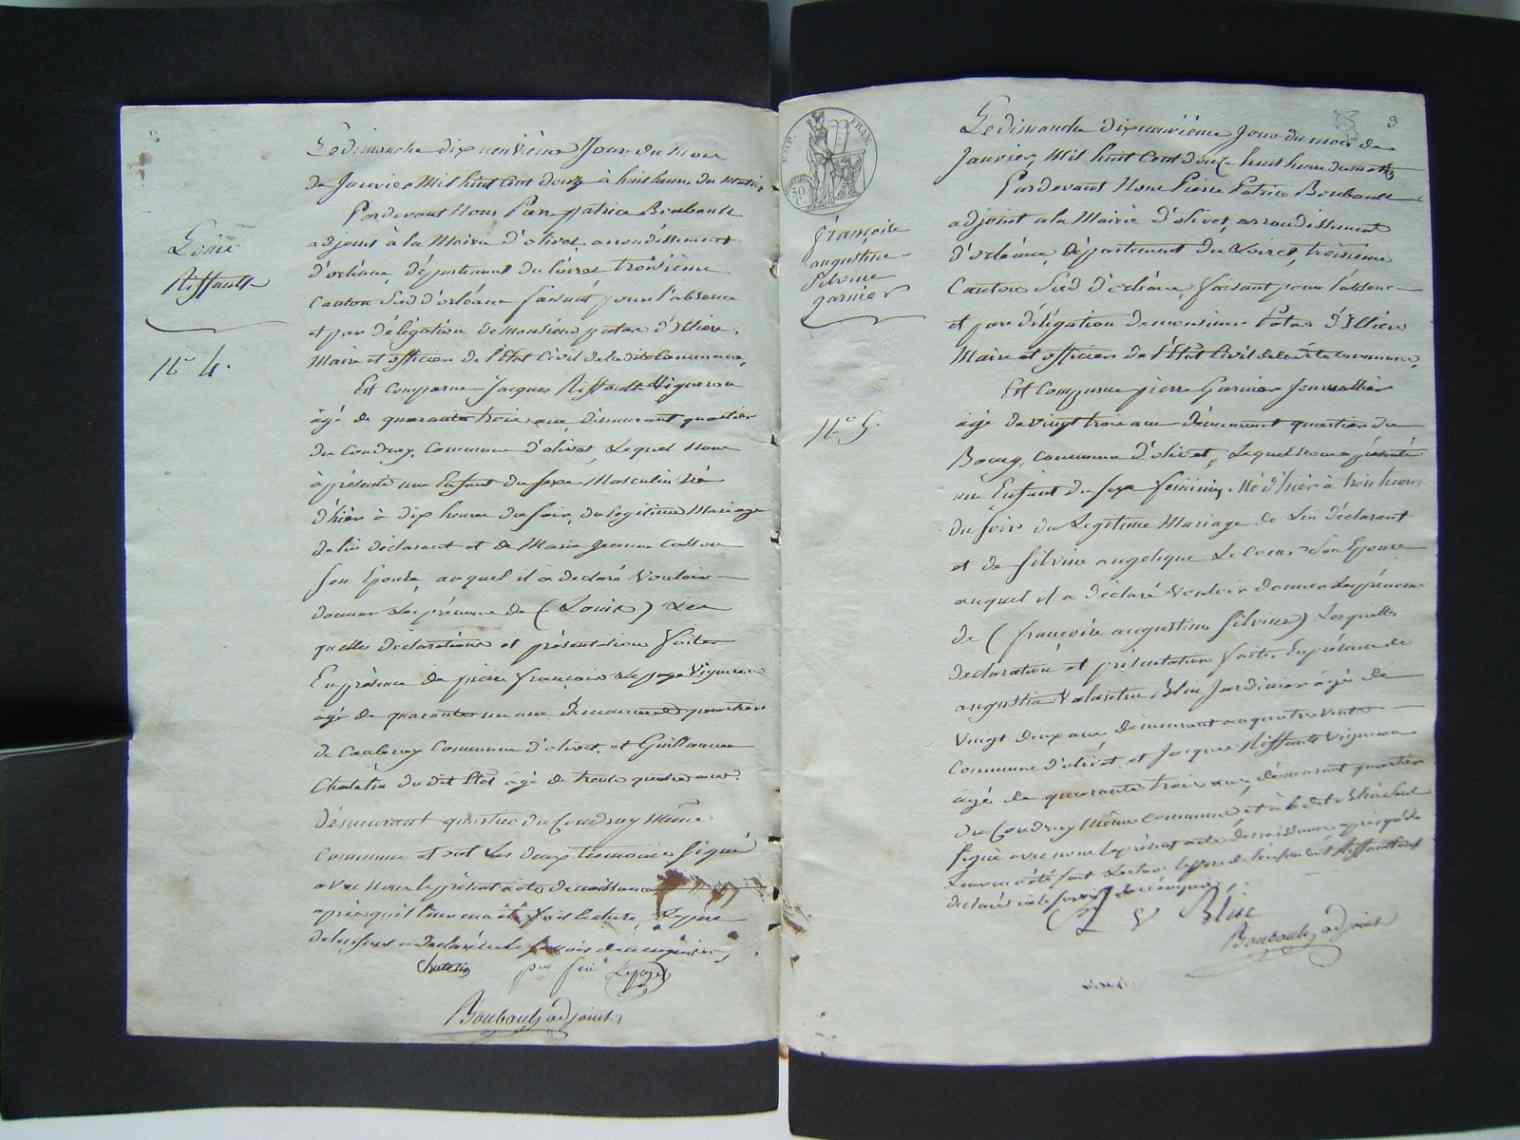 Louis
Riffault
N.º 4.
Le dimanche dix neuvième Jour du Mois
de Janvier Mil huit Cent douze à huit heure du matin,
Pardevant Nous Pierre patrice Boubault
adjoint à la Mairie d'olivet, arrondissement
d'orléans, département du Loiret troisième
Canton Sud d'orléans faisant pour l'absence
et par délégation de Monsieur petau d'Illiers,
Maire et officier de l'État Civil de ladite Commune,
Est Comparu Jacques Riffault Vigneron
âgé de quarante trois ans, demeurant quartier
du Coudray, Commune d'olivet, Lequel nous
à présenté un Enfant du sexe Masculin Né
d'hier à dix heures du soir, du légitime Mariage
de lui déclarant et de Marie Jeanne
son Epouse auquel il à declaré Vouloir
donner Les prénoms de (Louis) Les
quelles déclarations et présentations faites
En présence de pierre françois Lepage Vigneron
âgé de quarante un ans demeurant quartier
de Caubray Commune d'olivet, et Guillaume
Chatelin du dit État âgé de trente quatre ans
demeurant quartier du Coudray Même
Commune et ont Les deux temoins signé
avec nous le présent acte de naissance
après qu'il leur en a été fait lecture, Le pere
de l'enfant a declaré ne le savoir de ce enquis,
Chatelin Lepage
Boubault adjoint
3
EMP. FRAN.
50 C.
françoise
augustine
Silvine
garnier
N.º 5.
Le dimanche dix neuvième Jour du mois de
Janvier, Mil huit Cent douze huit heure du matin
Pardevant Nous Pierre Patrice Boubault
adjoint à la Mairie d'olivet, arrondissement
d'orléans, Département du Loiret, troisième
Canton Sud d'orléans, faisant pour l'absence
et par délégation de monsieur Petau d'Illiers
Maire et officier de l'État Civil de ladite commune,
Est Comparu pierre Garnier Journallier
âgé de vingt trois ans demeurant quartier du
Bourg, Commune d'olivet, Lequel nous a présenté
un Enfant du sexe féminin, Né d'hier à trois heures
du soir du Legitime Mariage de Lui déclarant
et de Silvine angelique Lecoeur son Epouse
auquel il a déclaré Vouloir donner Les prénoms
de (françoise augustine Silvine) Lesquelles
declaration et présentation faites En présence de
augustin Valentin Blin Jardinier âgé de
vingt deux ans demeurant
Commune d'olivet, et Jacques Riffault Vigneron
âgé de quarante trois ans, demeurant quartier
du Coudray Même Commune et à le dit Blin Seul
signé avec nous le présent acte de naissance après qu'il
Leur en a été fait Lecture le père de l'enfant et Riffault ont
declaré ne le savoir de ce enquis
Blin
Boubault adjoint